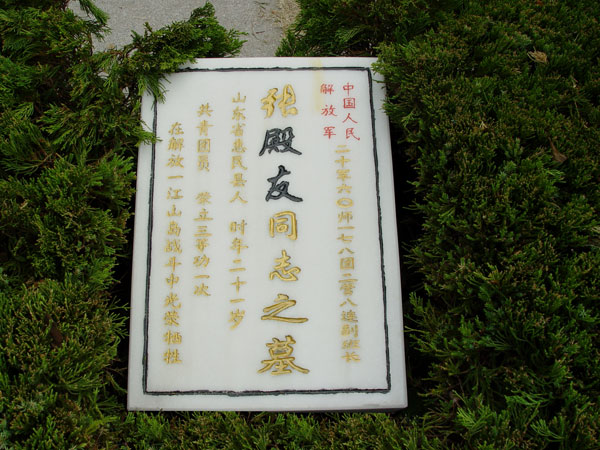 中国人民
解放军
二十军六〇师一七八团二营八连副班长
张殿友同志之墓
山东省惠民县人 时年二十一岁
共青团员 荣立三等功一次
在解放一江山岛战斗中光荣牺牲